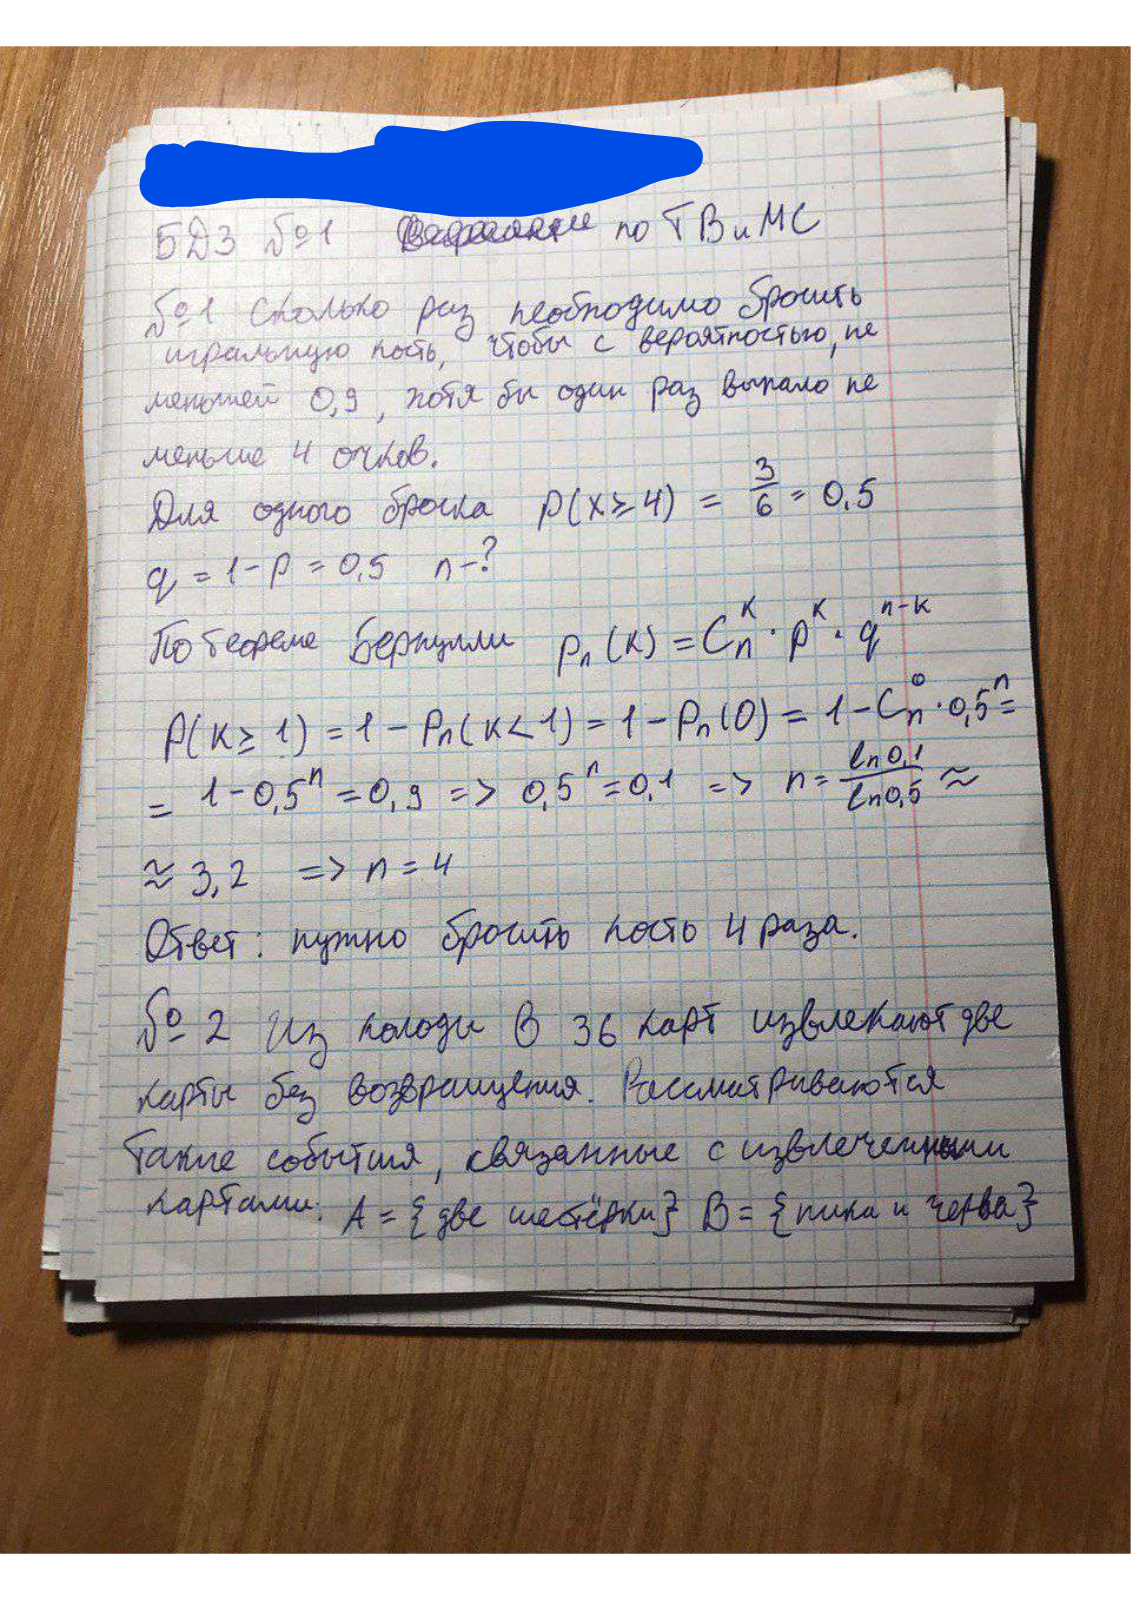 БДЗ №1 по ТВ и МС
№1 Сколько раз необходимо бросить
игральную кость, чтобы с вероятностью, не
меньшей 0,9, хотя бы один раз выпало не
меньше 4 очков.
Для одного броска P(x≥4) = 3/6 = 0,5
q = 1-p = 0,5 n-?
По теореме Бернулли Pₙ(k) = Cₙᵏ · pᵏ · qⁿ⁻ᵏ
P(k≥1) = 1 - Pₙ(k<1) = 1 - Pₙ(0) = 1 - Cₙ⁰ · 0,5ⁿ =
= 1-0,5ⁿ = 0,9 => 0,5ⁿ = 0,1 => n = ln0,1/ln0,5 ≈
≈ 3,2 => n = 4
Ответ: нужно бросить кость 4 раза.
№ 2 Из колоды в 36 карт извлекают две
карты без возвращения. Рассматриваются
такие события, связанные с извлеченными
картами: A = {две шестёрки} B = {пика и черва}